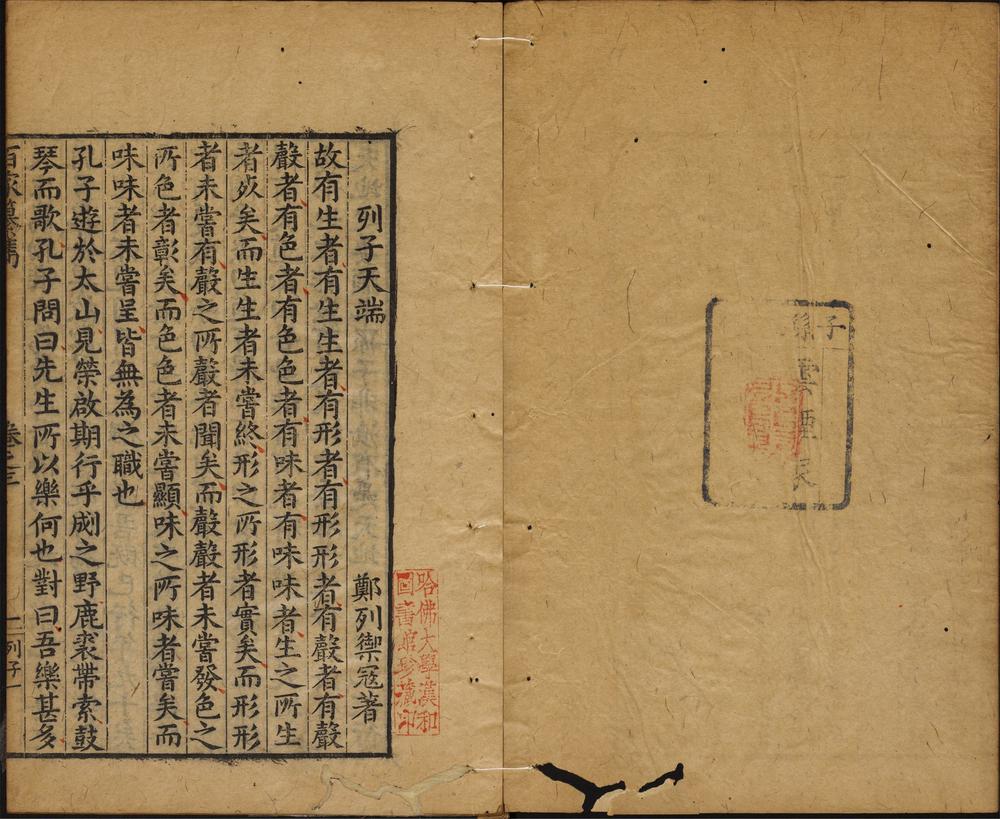 子
哈佛大學漢和
圖書館珍藏印
列子天端 鄭列禦寇著
故有生者有生生者有形者有形形者有聲者有聲
聲者有色者有色色者有味者有味味者生之所生
者死矣而生生者未嘗終形之所形者實矣而形形
者未嘗有聲之所聲者聞矣而聲聲者未嘗發色之
所色者彰矣而色色者未嘗顯味之所味者嘗矣而
味味者未嘗呈皆無為之職也
孔子遊於太山見榮啟期行乎郕之野鹿裘帶索鼓
琴而歌孔子問曰先生所以樂何也對曰吾樂甚多
百家 卷之三 列子一